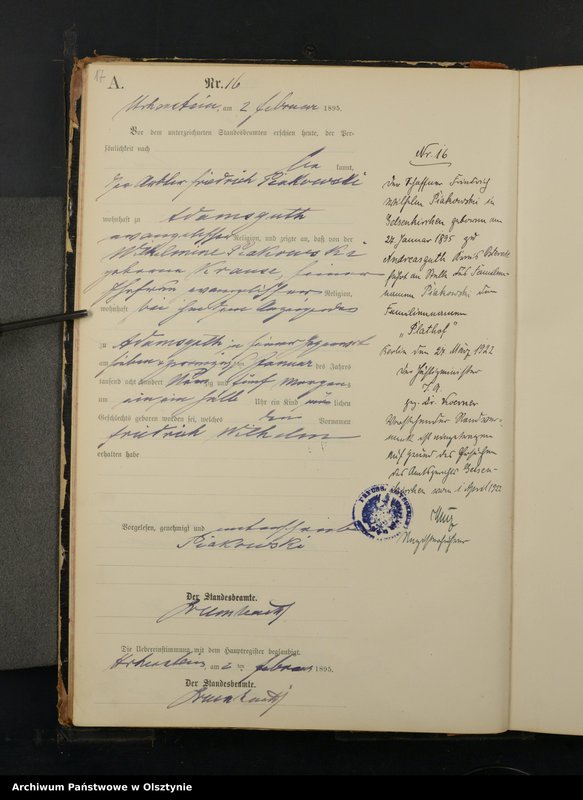 17
A.
Nr. 16
am 2 Februar 1895.
Vor dem unterzeichneten Standesbeamten erschien heute, der Per-
sönlichkeit nach
kannt,
Friedrich Piakowski
wohnhaft zu Adamsguth
evangelischer Religion, und zeigte an, daß von der
Wilhelmine Piakowski
geborene Krause, seiner
Ehefrau evangelischer Religion,
wohnhaft bei
zu Adamsguth in seiner
am Januar des Jahres
tausend acht hundert und fünf Morgens
um ein ein halb Uhr ein Kind lichen
Geschlechts geboren worden sei, welches den Vornamen
Friedrich Wilhelm
erhalten habe
Vorgelesen, genehmigt und unterschrieben
Piakowski
Der Standesbeamte.
Die Uebereinstimmung mit dem Hauptregister beglaubigt.
am 2 ten Februar 1895.
Der Standesbeamte.
Nr. 16
Der Schaffner Friedrich
Wilhelm Piakowski in
Gelsenkirchen geboren am
27 Januar 1895 zu
Andreasguth Kreis Osterode
führt an Stelle des Familien-
namens Piakowski den
Familiennamen
„Plathof"
Berlin den 24 März 1922
Der Justizminister
I. A.
gez. Dr.
Vorstehender Randver-
merk ist eingetragen
auf Grund des Ersuchens
des Amtsgerichts Gelsen-
kirchen vom 1 April 1922
Archiwum Państwowe w Olsztynie